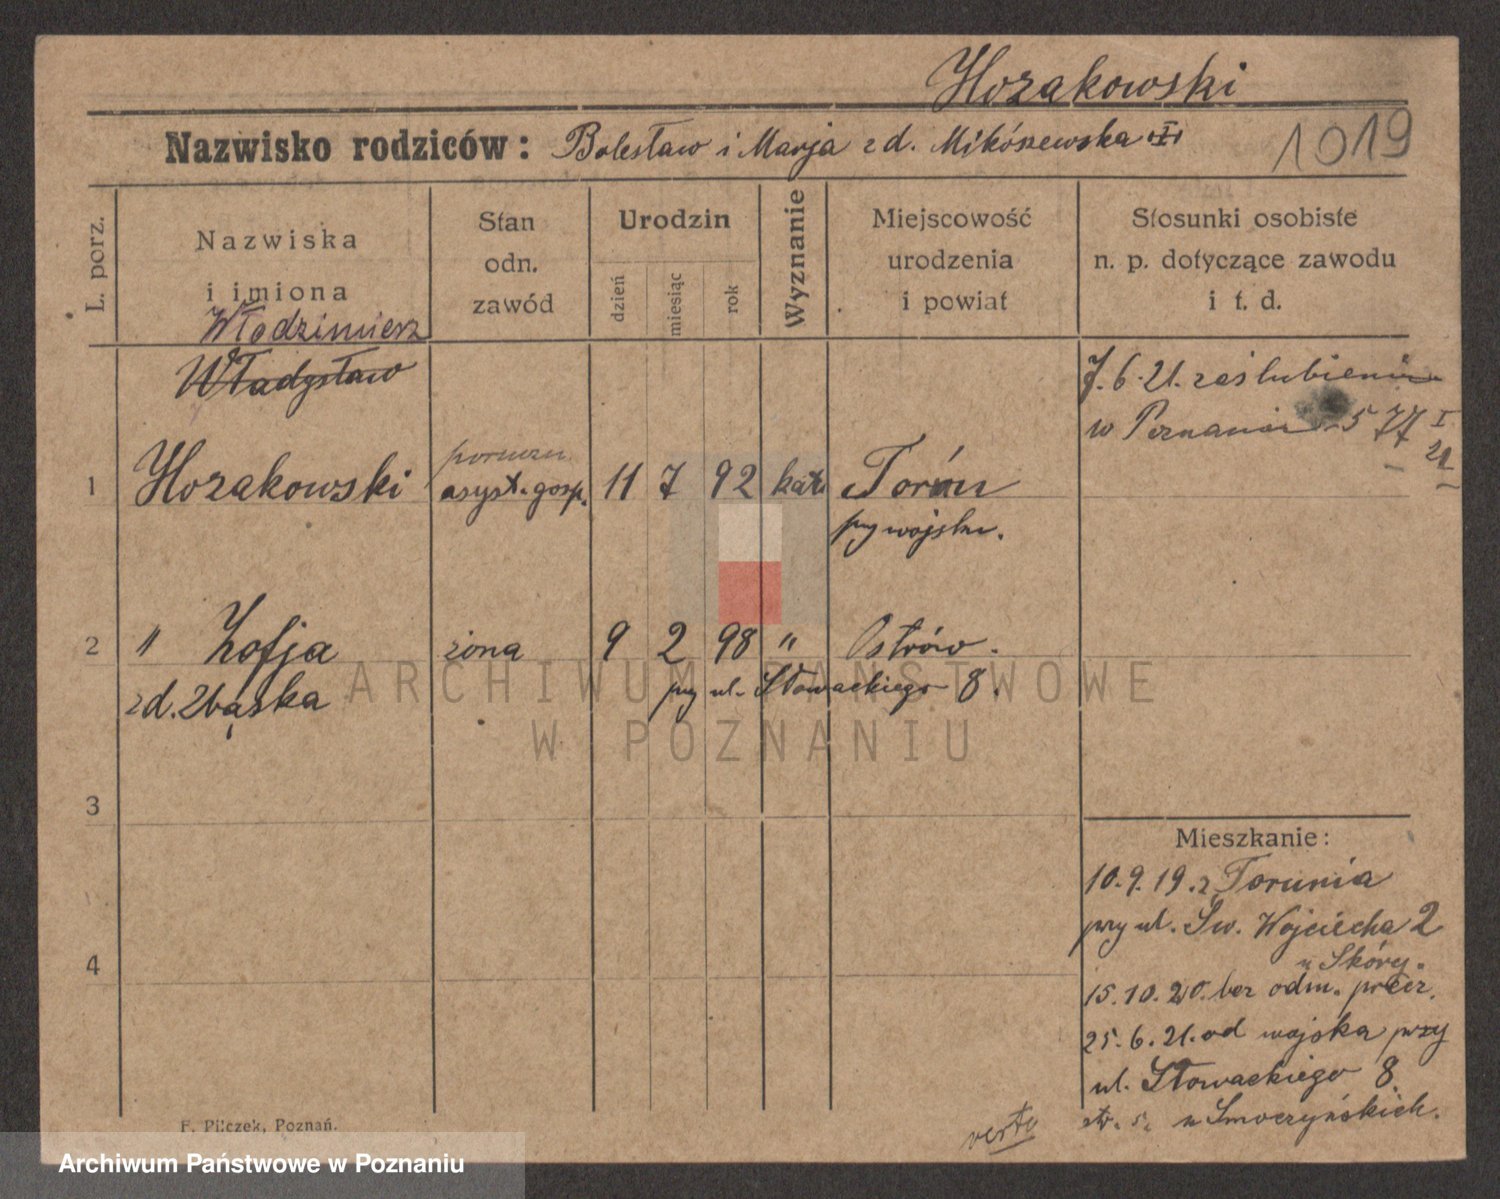 Hozakowski
Nazwisko rodziców: Bolesław i Marja z d. Mikószewska
1019
L. porz.
Nazwiska
i imiona
Stan
odn.
zawód
Urodzin
dzień
miesiąc
rok
Wyznanie
Miejscowość
urodzenia
i powiat
Stosunki osobiste
n. p. dotyczące zawodu
i t. d.
Włodzimierz
Władysław
7. 6. 21. zaślubieni
w Poznaniu 577 I
21
1 Hozakowski asyst. gosp. 11 7 92 kat. Toruń
przy wojsku.
2 " Zofja żona 9 2 98 " Ostrów.
z d. Zbąska przy ul. Słowackiego 8.
3
4
Mieszkanie:
10. 9. 19. z Torunia
przy ul. Św. Wojciecha 2
u Skóry.
15. 10. 20. bez odm. przez.
25. 6. 21. od wojska przy
ul. Słowackiego 8.
u Smoczyńskich.
verte
F. Pilczek, Poznań.
ARCHIWUM PAŃSTWOWE
W POZNANIU
Archiwum Państwowe w Poznaniu